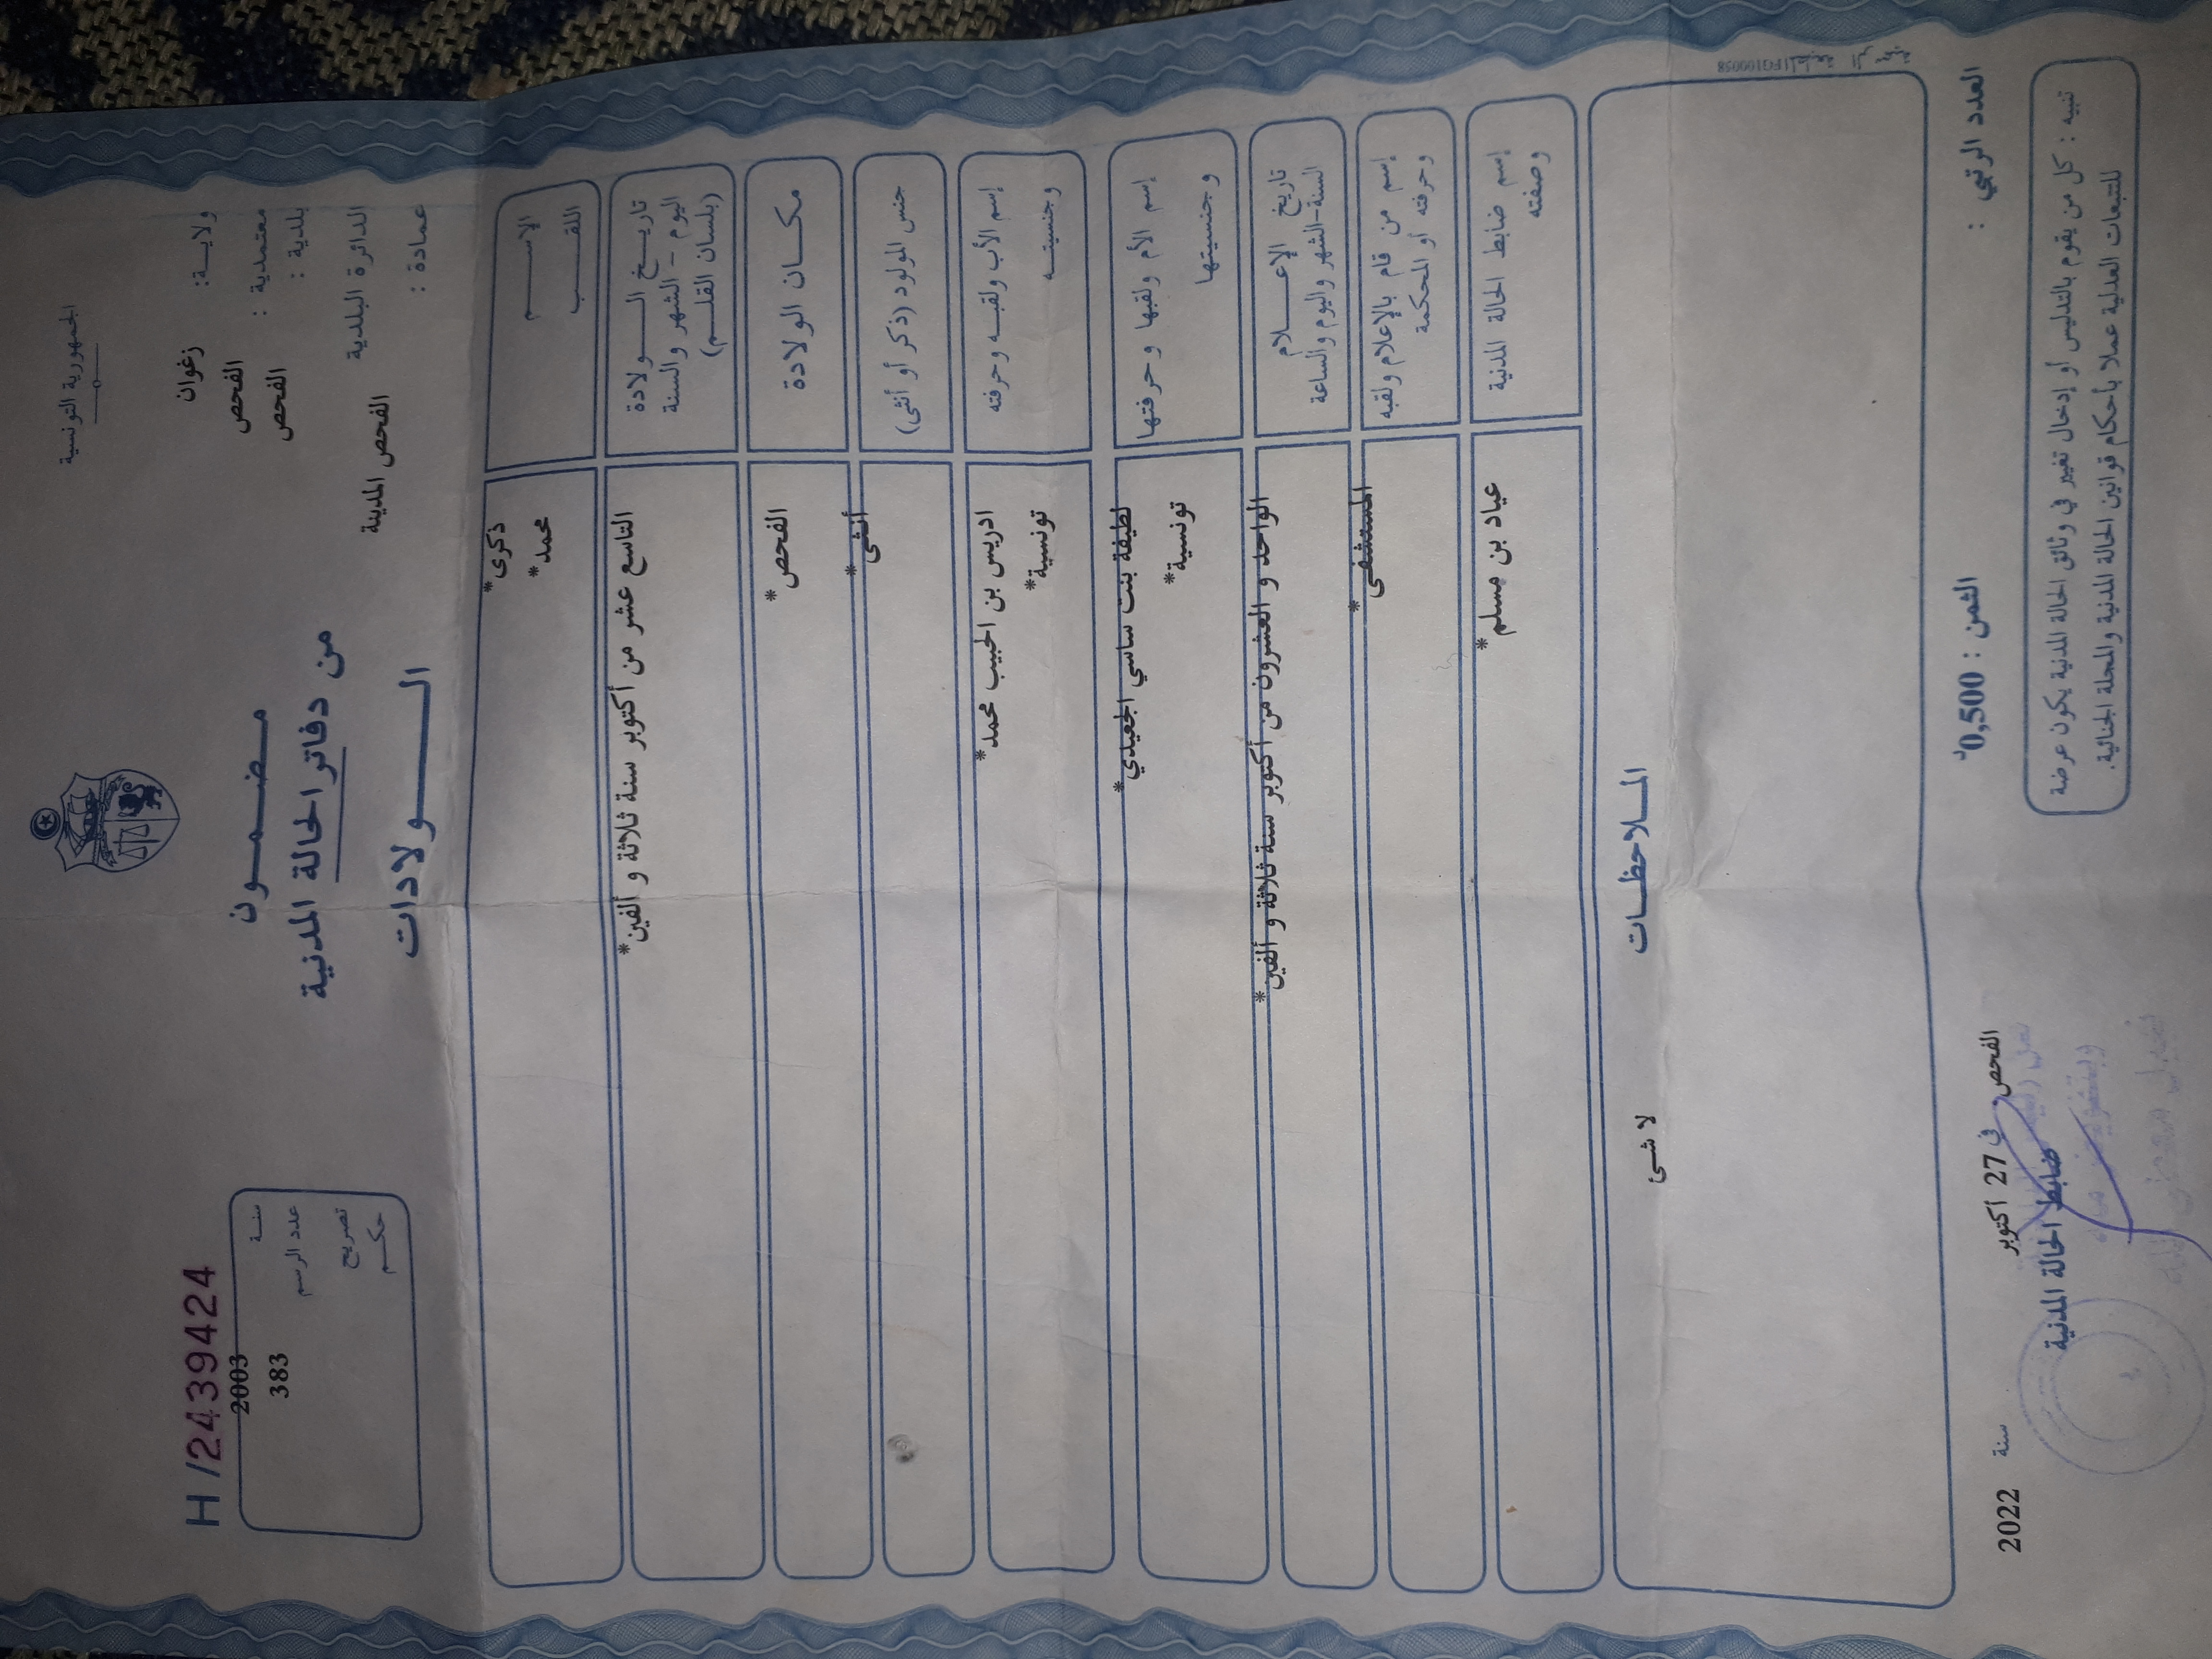 الجمهورية التونسية
ولاية: زغوان
معتمدية : الفحص
بلدية : الفحص
الدائرة البلدية الفحص المدينة
عمادة :
مضمون
من دفاتر الحالة المدنية
الولادات
H /2439424
سنة 2003
عدد الرسم 383
تصريح
حكم
الإسم ذكرى*
اللقب محمد*
تاريخ الولادة
اليوم - الشهر والسنة
(بلسان القلم)
التاسع عشر من أكتوبر سنة ثلاثة و ألفين*
مكان الولادة الفحص*
جنس المولود (ذكر أو أنثى) أنثى*
إسم الأب ولقبه وحرفته ادريس بن الحبيب محمد*
وجنسيته تونسية*
إسم الأم ولقبها وحرفتها لطيفة بنت ساسي الجعيدي*
وجنسيتها تونسية*
تاريخ الإعلام
السنة-الشهر واليوم والساعة
الواحد و العشرون من أكتوبر سنة ثلاثة و ألفين*
إسم من قام بالإعلام ولقبه
وحرفته أو المحكمة
المستشفى*
إسم ضابط الحالة المدنية
وصفته
عياد بن مسلم*
الملاحظات
لا شئ
العدد الرتبي :
الثمن : 0,500د
الفحص في 27 أكتوبر سنة 2022
ضابط الحالة المدنية
تنبيه : كل من يقوم بالتدليس أو إدخال تغيير في وثائق الحالة المدنية يكون عرضة
للتتبعات العدلية عملا بأحكام قوانين الحالة المدنية والمجلة الجنائية.